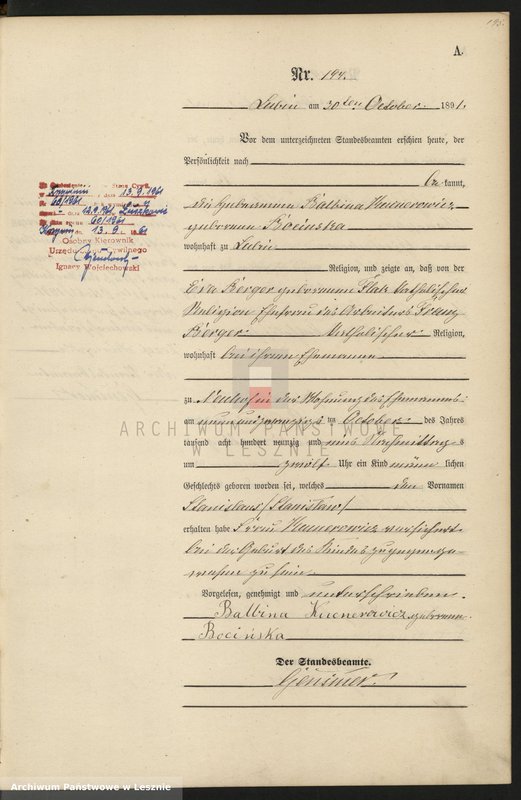 195.
A.
Nr. 194.
Lubin am 30ten October 1891.
Vor dem unterzeichneten Standesbeamten erschien heute, der
Persönlichkeit nach
be kannt,
die Hebeamme Balbina
geborene Bocinska
wohnhaft zu Lubin
Religion, und zeigte an, daß von der
Eva Berger geborenen katholischer
Religion Ehefrau des Arbeiters Franz
Berger katholischer Religion,
wohnhaft bei ihrem Ehemanne
zu in der Wohnung des Ehemannes
am neunundzwanzigs ten October des Jahres
tausend acht hundert neunzig und eins Nachmittag s
um zwölf Uhr ein Kind männ lichen
Geschlechts geboren worden sei, welches den Vornamen
Stanislaus /Stanislaw/
erhalten habe Frau versichert
bei der Geburt des Kindes zugegen ge-
wesen zu sein.
Vorgelesen, genehmigt und unterschrieben.
Balbina geborene
Bocińska
Der Standesbeamte.
13.9.1961
60/1961
12.9.1961
60/1961
13. 9. 1961
Osobny Kierownik
Urzędu Stanu Cywilnego
Ignacy Wojciechowski
ARCHIWUM PAŃSTWOWE
W LESZNIE
Archiwum Państwowe w Lesznie